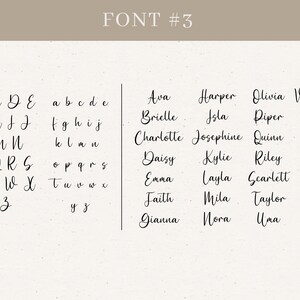 FONT #3
D E
J J
N
R S
W X
Z
a b c d e
f g h i j
k l m n
o p q r s
t u v w x
y z
Ava Harper Olivia
Brielle Isla Piper
Charlotte Josephine Quinn
Daisy Kylie Riley
Emma Layla Scarlett
Faith Mila Taylor
Gianna Nora Uma